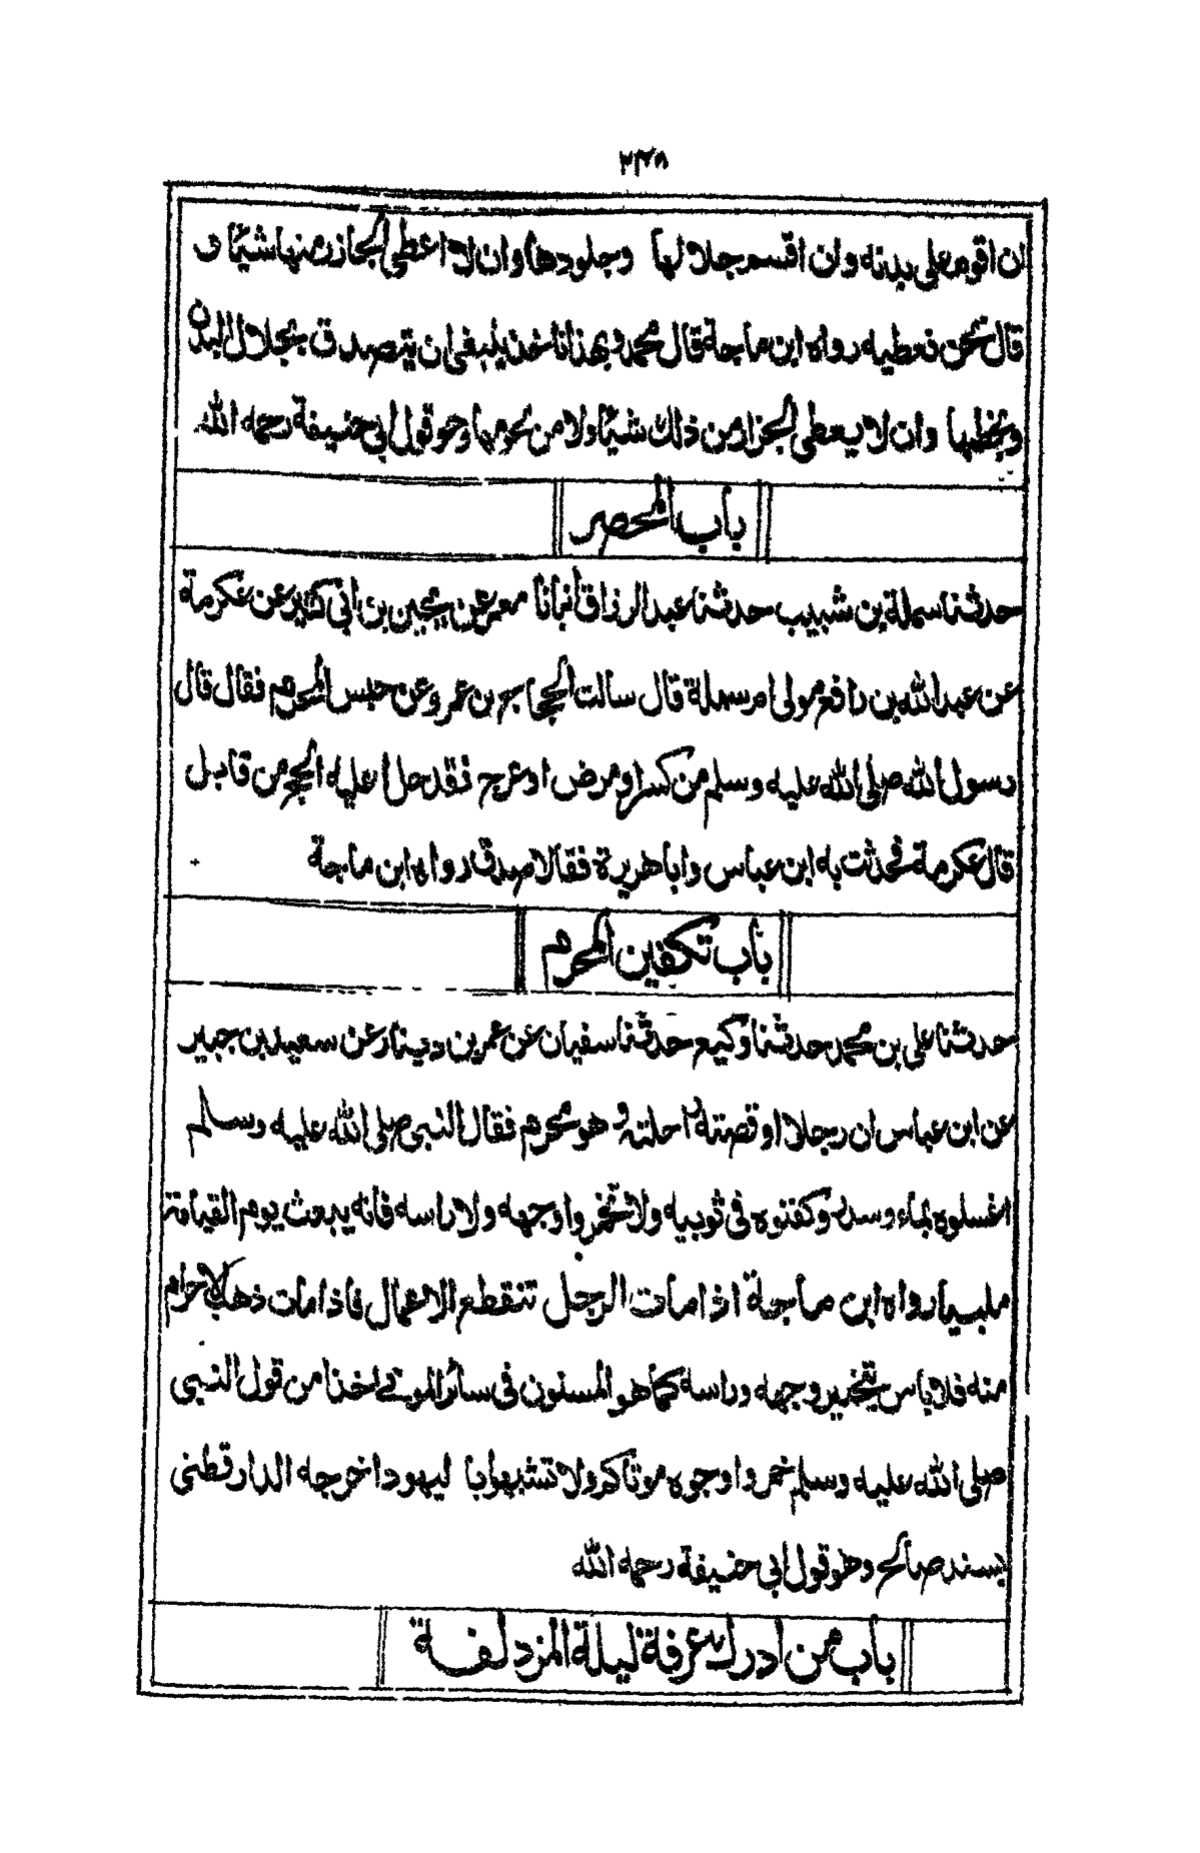 ٢٣٨
ان اقوم على بدنه وان اقسم جلالها وجلودها وان لا اعطى الجازر منها شيئا و
قال نحن نعطيه رواه ابن ماجة قال محمد وبهذا ناخذ ينبغى ان يتصدق بجلال البدن
وبخطبها وان لا يعطى الجزار من ذلك شيئا ولا من لحومها وهو قول ابى حنيفة رحمه الله
باب المحصر
حدثنا سلمة بن شبيب حدثنا عبد الرزاق أنبانا معمر عن يحيى بن أبى كثير عن عكرمة
عن عبد الله بن رافع مولى ام سلمة قال سالت الحجاج بن عمرو عن حبس المحرم فقال قال
رسول الله صلى الله عليه وسلم من كسر او مرض او عرج فقد حل عليه الحج من قابل
قال عكرمة فحدثت به ابن عباس وابا هريرة فقالا صدق رواه ابن ماجة
باب تكفين المحرم
حدثنا على بن محمد حدثنا وكيع حدثنا سفيان عن عمر بن دينار عن سعيد بن جبير
عن ابن عباس ان رجلا اوقصته راحلته وهو محرم فقال النبى صلى الله عليه وسلم
اغسلوه بماء وسدر وكفنوه فى ثوبيه ولا تخمروا وجهه ولا راسه فانه يبعث يوم القيامة
ملبيا رواه ابن ماجة اذا مات الرجل تنقطع الاعمال فاذا مات ذهب الاحرام
منه فلا باس بتخمير وجهه وراسه كما هو المسنون فى سائر الموتى اخذا من قول النبى
صلى الله عليه وسلم خمروا وجوه موتاكم ولا تشبهوا با ليهود اخرجه الدارقطنى
بسند صالح وهو قول ابى حنيفة رحمه الله
باب من ادرك عرفة ليلة المزدلفة